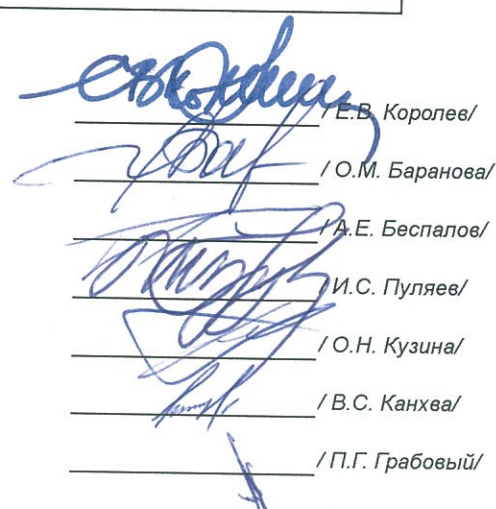 / Е.В. Королев/
/ О.М. Баранова/
/ А.Е. Беспалов/
/ И.С. Пуляев/
/ О.Н. Кузина/
/ В.С. Канхва/
/ П.Г. Грабовый/